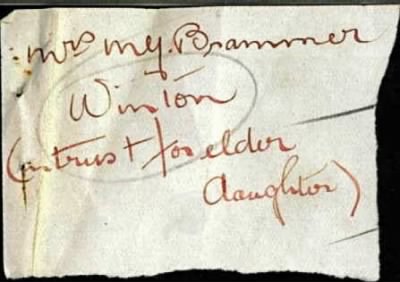 Mrs M.J. Brammer
Winton
(in trust for elder
daughter)